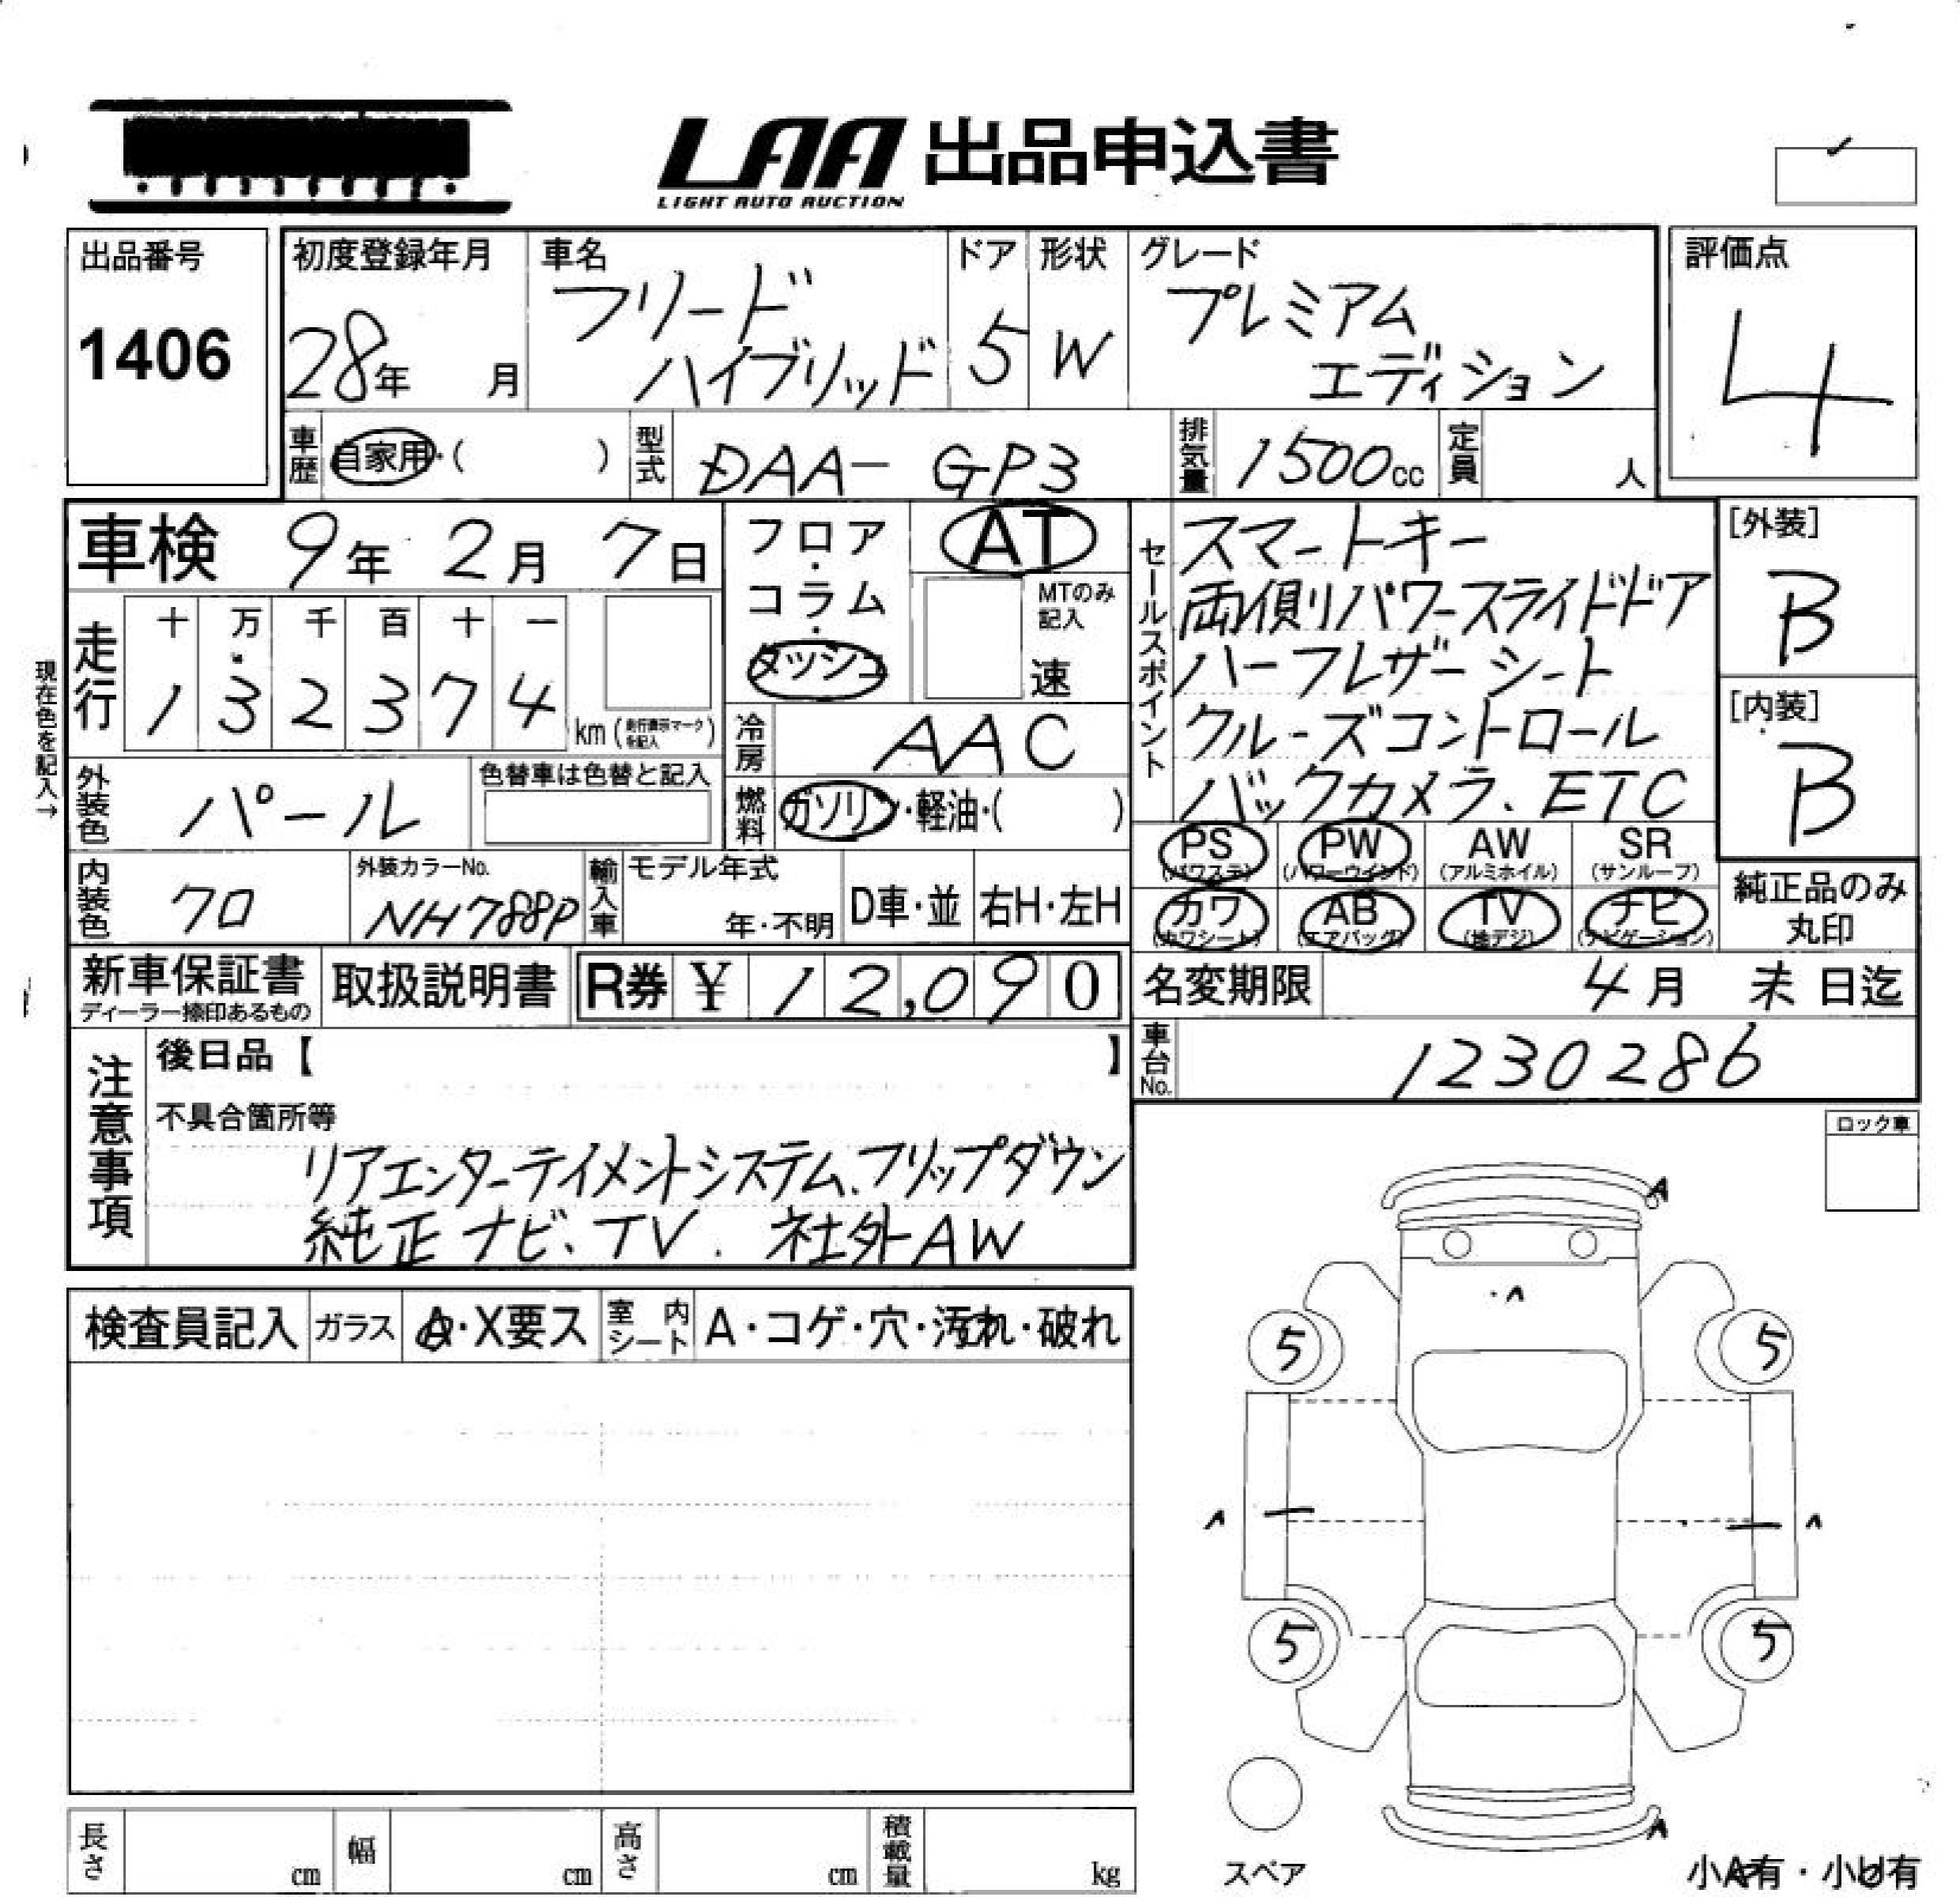 LAA 出品申込書
LIGHT AUTO AUCTION
出品番号
1406
初度登録年月
28年 月
車名
フリード
ハイブリッド
ドア
5
形状
W
グレード
プレミアム
エディション
評価点
4
車歴
自家用・( )
型式
DAA- GP3
排気量
1500cc
定員
人
車検 9年 2月 7日
フロア・
コラム・
ダッシュ
AT
MTのみ
記入
速
セールスポイント
スマートキー
両側リパワースライドドア
ハーフレザーシート
クルーズコントロール
バックカメラ、ETC
[外装]
B
[内装]
B
現在色を記入→
走行
十 万 千 百 十 一
1 3 2 3 7 4 km (走行表示マークを記入)
冷房
AAC
外装色
パール
色替車は色替と記入
燃料
ガソリン・軽油・( )
PS
(パワステ)
PW
(パワーウインド)
AW
(アルミホイル)
SR
(サンルーフ)
カワ
(カワシート)
AB
(エアバッグ)
TV
(地デジ)
ナビ
(ナビゲーション)
純正品のみ
丸印
内装色
クロ
外装カラーNo.
NH788P
輸入車
モデル年式
年・不明
D車・並
右H・左H
新車保証書
ディーラー捺印あるもの
取扱説明書
R券 ¥ 12,090
名変期限
4月 末 日迄
車台No.
1230286
注意事項
後日品【 】
不具合箇所等
リアエンターテイメントシステム、フリップダウン
純正ナビ、TV. 社外AW
ロック車
検査員記入
ガラス
A・X要ス
室内シート
A・コゲ・穴・汚れ・破れ
A
A
5
5
A
A
5
5
A
スペア
小A有・小U有
長さ
cm
幅
cm
高さ
cm
積載量
kg